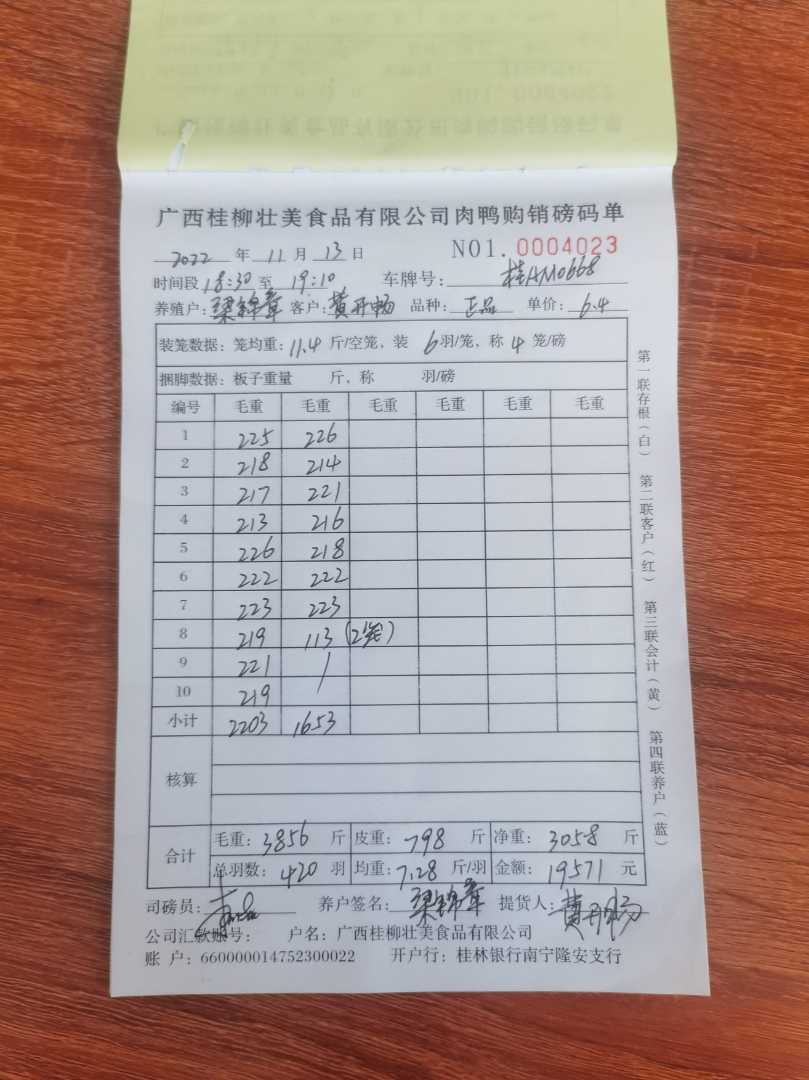 广西桂柳壮美食品有限公司肉鸭购销磅码单
2022 年 11 月 13 日 NO1. 0004023
时间段 18:30 至 19:10 车牌号: 桂AM0668
养殖户: 梁锦章 客户: 黄开畅 品种: 正品 单价: 6.4
装笼数据: 笼均重: 11.4 斤/空笼、装 6 羽/笼、称 4 笼/磅
捆脚数据: 板子重量 斤、称 羽/磅
编号 毛重 毛重 毛重 毛重 毛重 毛重
1 225 226
2 218 214
3 217 221
4 213 216
5 226 218
6 222 222
7 223 223
8 219 113 (2笼)
9 221 /
10 219
小计 2203 1653
核算
合计 毛重: 3856 斤 皮重: 798 斤 净重: 3058 斤
总羽数: 420 羽 均重: 7.28 斤/羽 金额: 19571 元
司磅员: 养户签名: 梁锦章 提货人: 黄开畅
公司汇款账号: 户名: 广西桂柳壮美食品有限公司
账 户: 660000014752300022 开户行: 桂林银行南宁隆安支行
第一联存根(白) 第二联客户(红) 第三联会计(黄) 第四联养户(蓝)